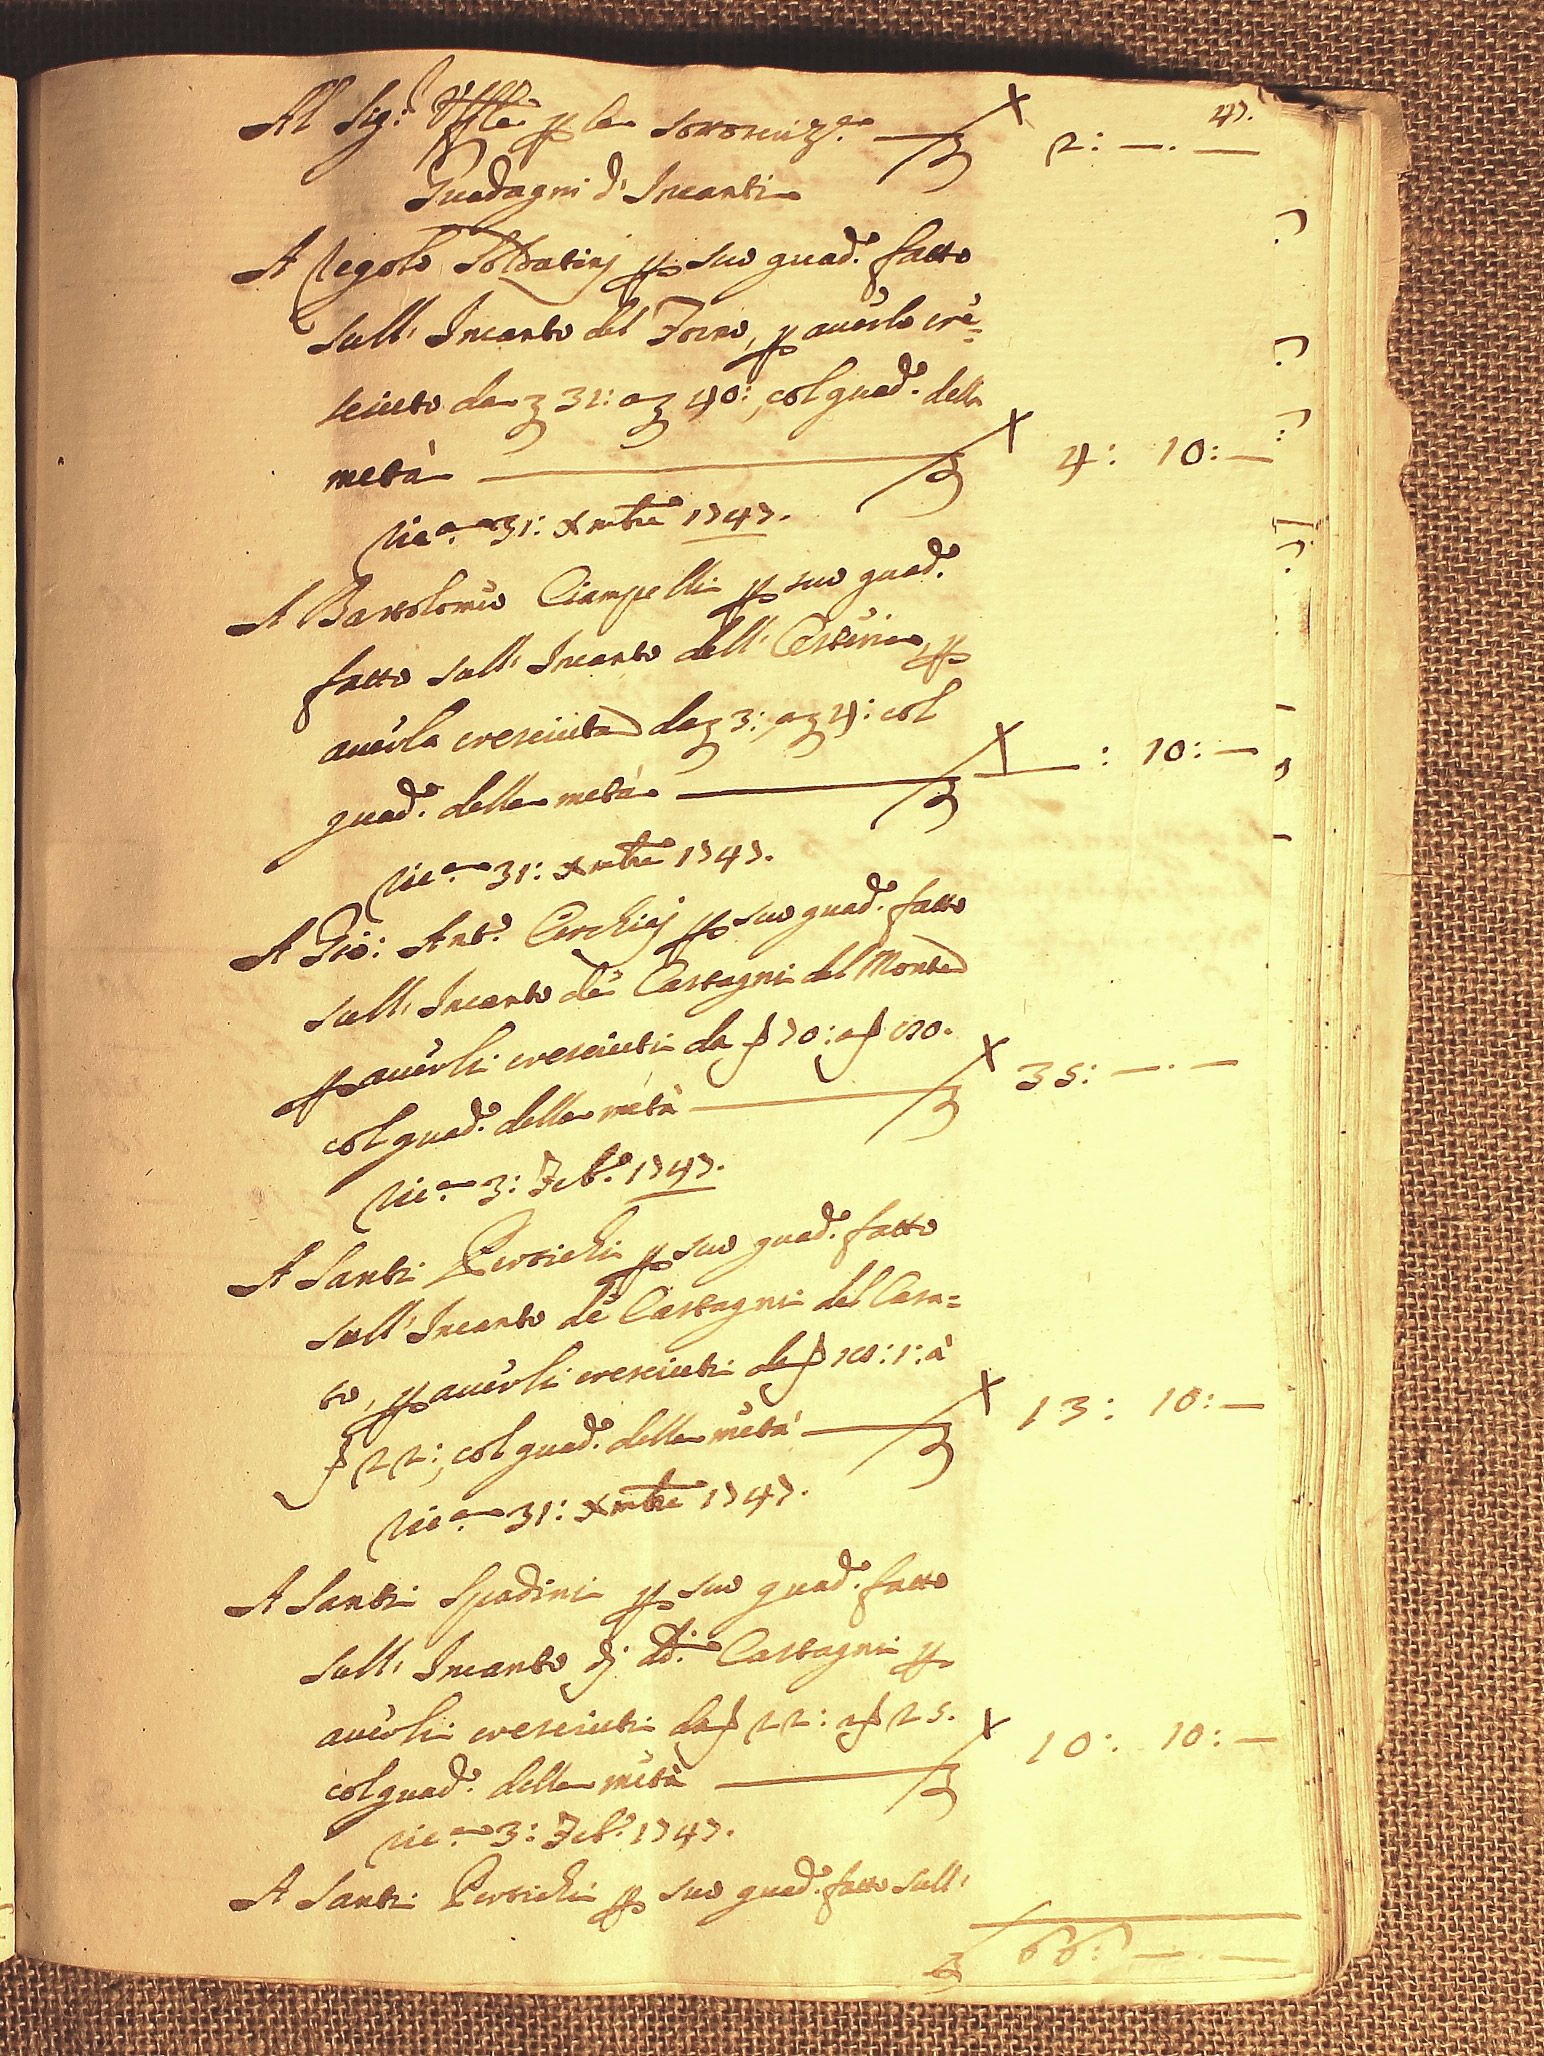 47.
Al Sig.r Uffle p la sottoscriz.e £ 2: —. —
Guadagni d'Incanti
A Regolo Soldatinj p suo guad.o fatto
sull'Incanto del Forno, p auerlo cre=
sciuto da £ 31: a £ 40:, col guad.o della
metà £ 4: 10: —
Lic.a 31: Xmbre 1747.
A Bartolomeo Ciampelli p suo guad.o
fatto sull'Incanto dell'Osteria, p
auerla cresciuta da £ 3: a £ 4: col
guad.o della metà £ —: 10: —
Lic.a 31: Xmbre 1747.
A Gio: Ant.o Cerchiej p suo guad.o fatto
sull'Incanto de Castagni del Monte
p auerli cresciuti da 70: a
col guad.o della metà £ 35: —. —
Lic.a 3: Feb.o 1747.
A Santi Pertichi p suo guad.o fatto
sull'Incanto de Castagni del Cera=
to, p auerli cresciuti da 18: 1: à
22:, col guad.o della metà £ 13: 10: —
Lic.a 31: Xmbre 1747.
A Santi Spadini p suo guad.o fatto
sull'Incanto dj dd.i Castagni p
auerli cresciuti da 22: a 25.
col guad.o della metà £ 10: 10: —
Lic.a 3: Feb.o 1747.
A Santi Pertichi p suo guad.o fatto sull'
£ 66: —. —